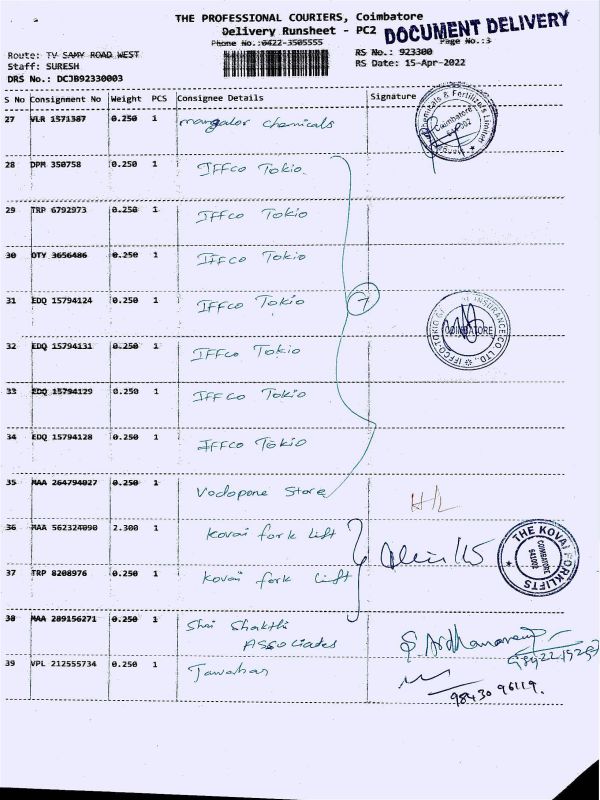 THE PROFESSIONAL COURIERS, Coimbatore
Delivery Runsheet - PC2
DOCUMENT DELIVERY
Phone No.:0422-3505555
Page No.:3
Route: TV SAMY ROAD WEST
RS No.: 923300
Staff: SURESH
RS Date: 15-Apr-2022
DRS No.: DCJB92330003
S No Consignment No Weight PCS Consignee Details Signature
27 VLR 1571387 0.250 1 mangalor chemicals
Chemicals & Fertilizers Limited
Coimbatore
28 DPM 350758 0.250 1 IFFco Tokio
29 TRP 6792973 0.250 1 IFFco Tokio
30 OTY 3656486 0.250 1 IFFco Tokio
31 EDQ 15794124 0.250 1 IFFco Tokio
7
IFFCO-TOKIO INSURANCE CO. LTD.
COIMBATORE
32 EDQ 15794131 0.250 1 IFFco Tokio
33 EDQ 15794129 0.250 1 IFFco Tokio
34 EDQ 15794128 0.250 1 IFFco Tokio
35 MAA 264794027 0.250 1 Vodopone Store
H/L
36 MAA 562324090 2.300 1 Kovai fork Lift
THE KOVAI FORKLIFTS
COIMBATORE
641002
37 TRP 8208976 0.250 1 Kovai fork Lift
38 MAA 289156271 0.250 1 Shri Shakthi
Associates
39 VPL 212555734 0.250 1 Jawahar
98430 96119.